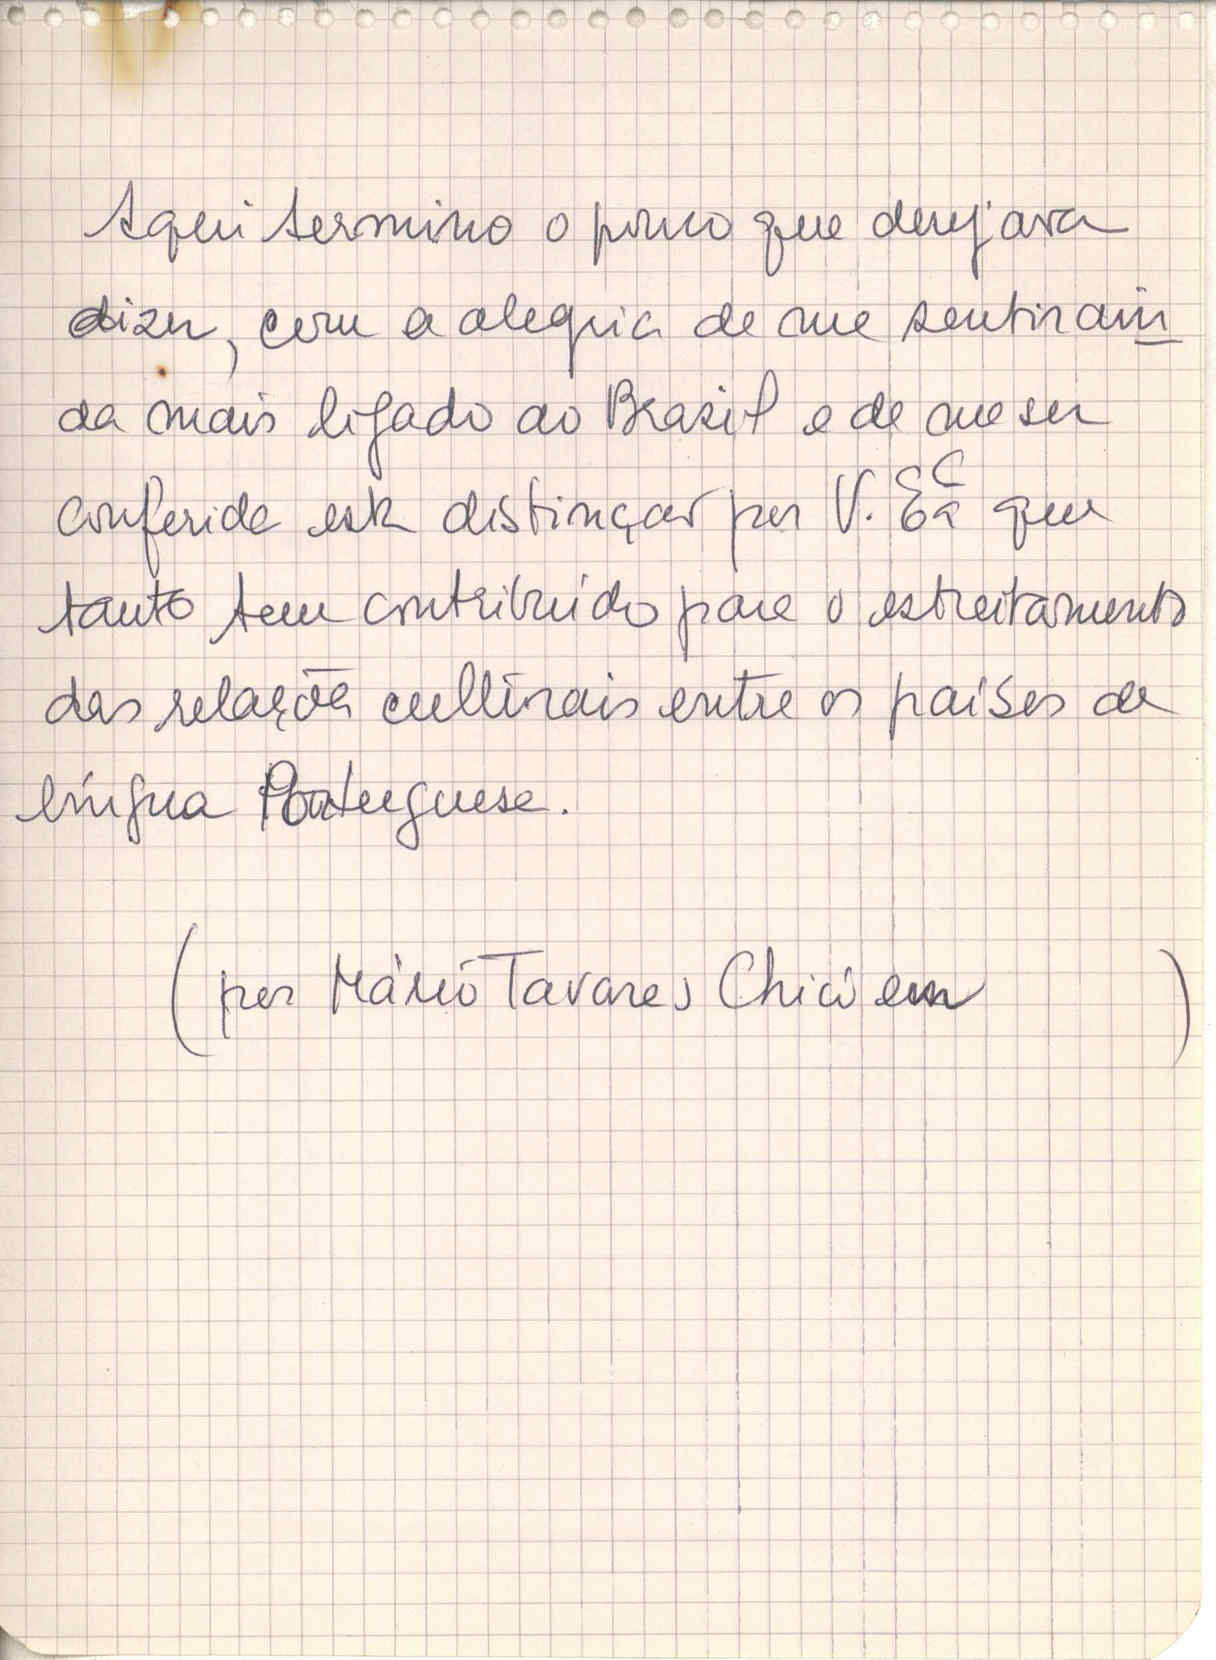 Aqui termino o pouco que desejava
dizer, com a alegria de me sentir ain
da mais ligado ao Brasil e de me ser
conferida esta distinção por V. Exª que
tanto tem contribuído para o estreitamento
das relações culturais entre os países de
língua Portuguesa.
(por Mário Tavares Chicó em )